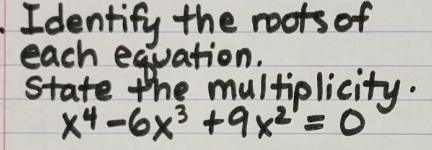 . Identify the roots of
each equation.
State the multiplicity.
x⁴-6x³+9x²=0